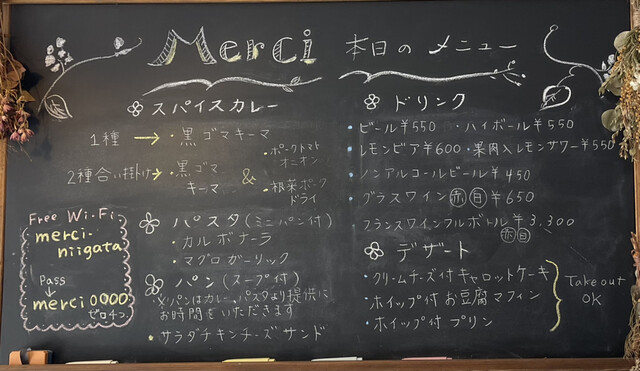 Merci 本日のメニュー
スパイスカレー
1種 → ・黒ゴマキーマ
2種合い掛け → ・黒ゴマキーマ & ・ポークトマトオニオン
・根菜ポークドライ
パスタ(ミニパン付)
・カルボナーラ
・マグロガーリック
パン(スープ付)
※パンはカレー、パスタより提供に
お時間をいただきます
・サラダチキンチーズサンド
Free Wi-Fi
merci-
niigata
Pass
→
merci0000
ゼロ4つ
ドリンク
・ビール¥550 ・ハイボール¥550
・レモンビア¥600 ・果肉入レモンサワー¥550
・ノンアルコールビール¥450
・グラスワイン(赤)(白)¥650
フランスワインフルボトル¥3,300
(赤)(白)
デザート
・クリームチーズ付キャロットケーキ
・ホイップ付お豆腐マフィン
・ホイップ付プリン
Take out
OK